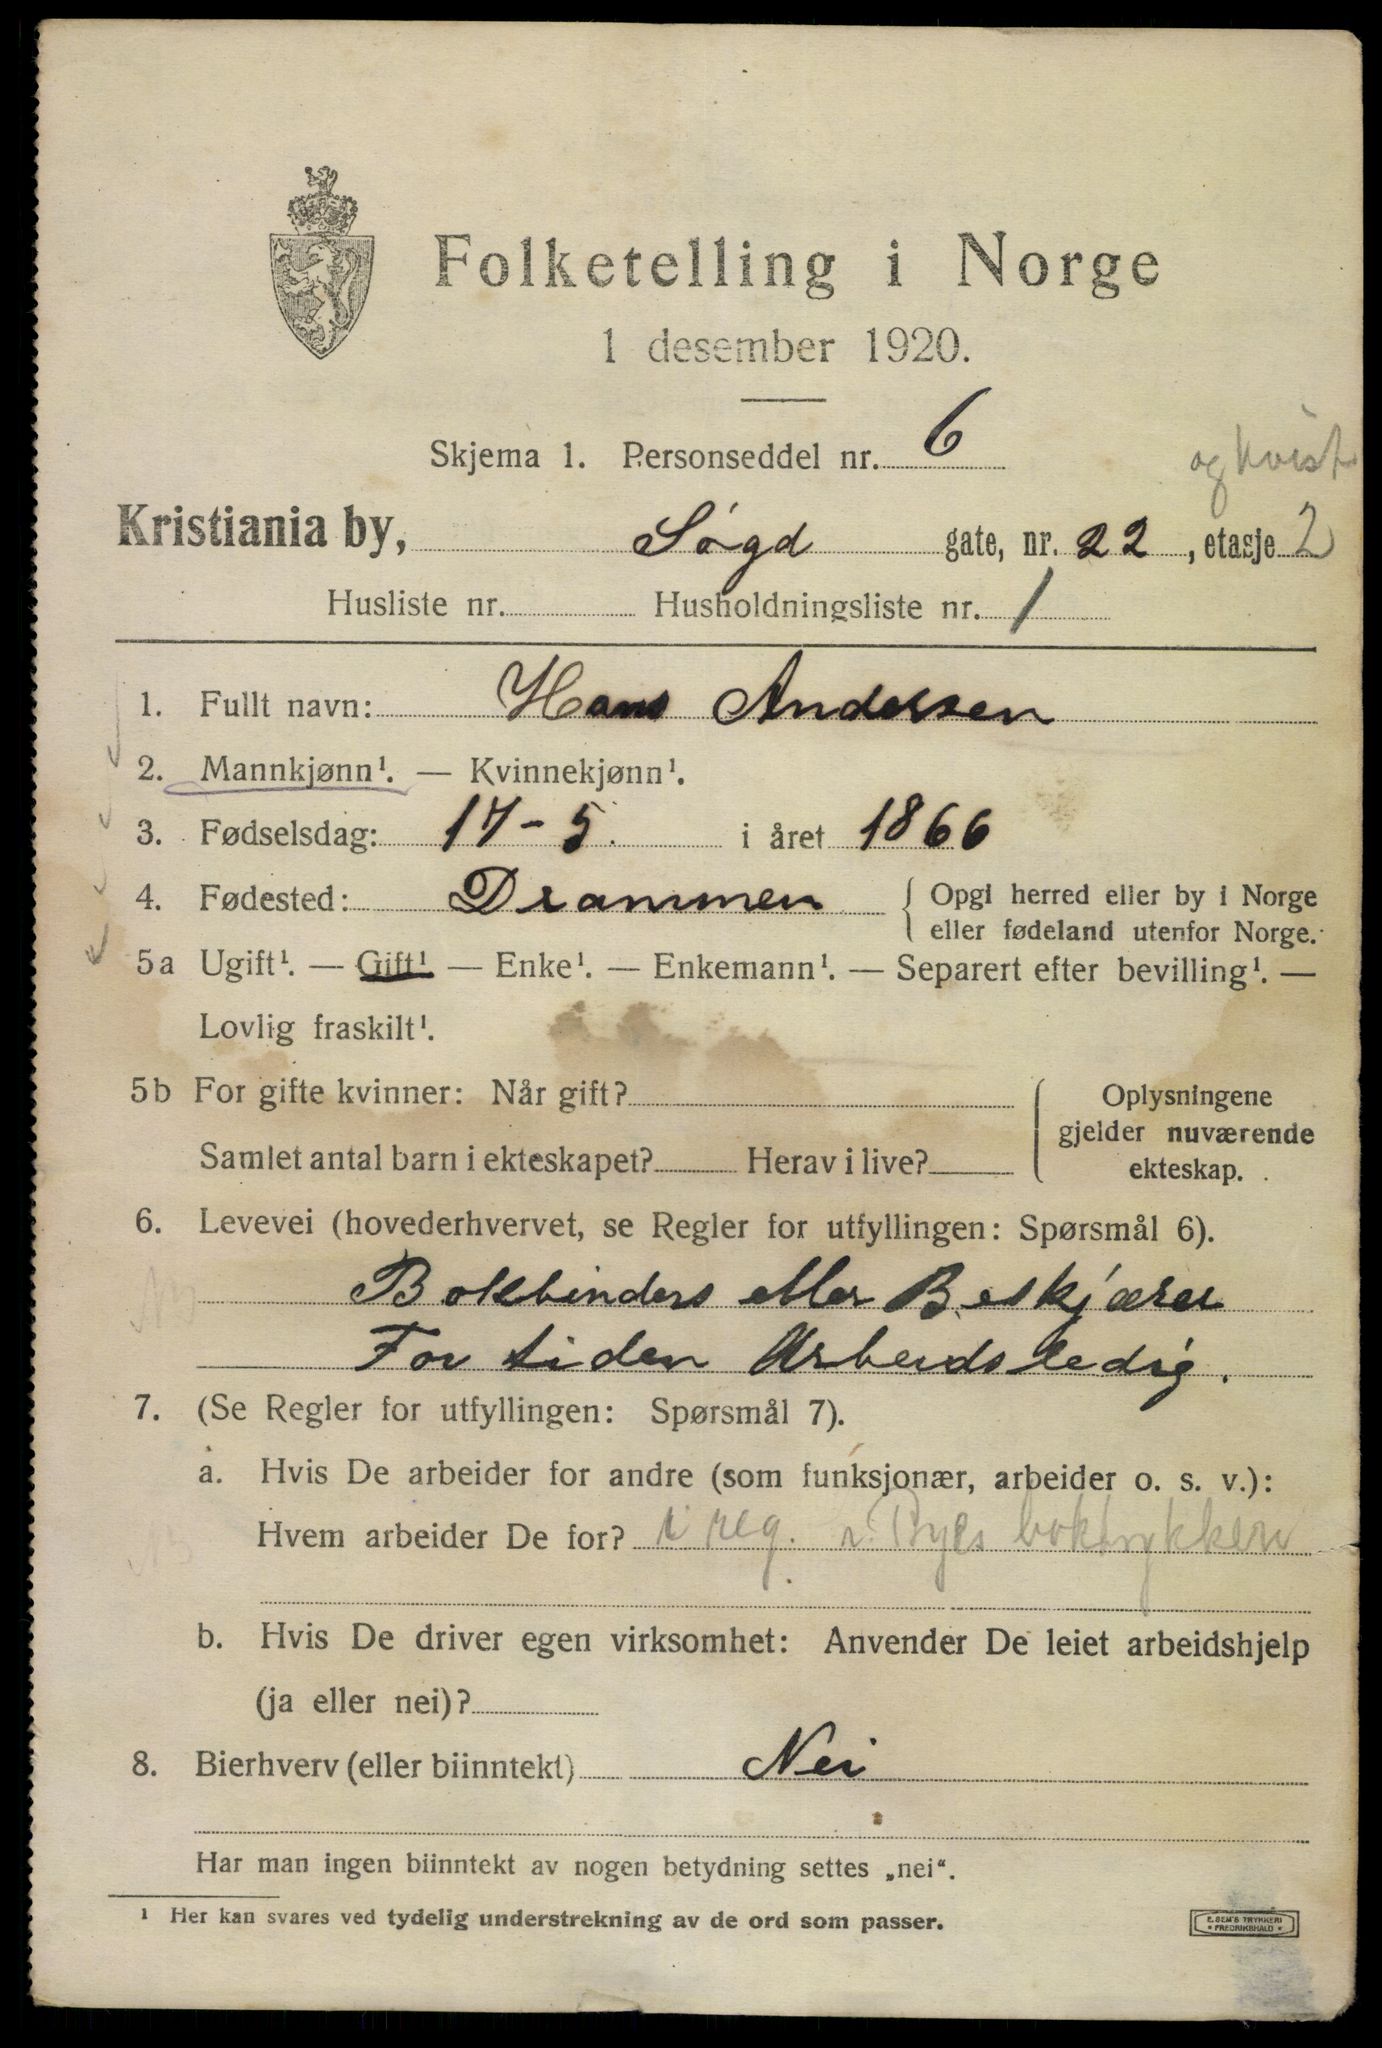 Folketelling i Norge
1 desember 1920.
Skjema 1. Personseddel nr. 6
og kvist
Kristiania by, Søgd gate, nr. 22, etasje 2
Husliste nr. Husholdningsliste nr. 1
1. Fullt navn: Hans Andersen
2. Mannkjønn¹. — Kvinnekjønn¹.
3. Fødselsdag: 17-5. i året 1866
4. Fødested: Drammen { Opgi herred eller by i Norge
eller fødeland utenfor Norge.
5a Ugift¹. — Gift¹ — Enke¹. — Enkemann¹. — Separert efter bevilling¹. —
Lovlig fraskilt¹.
5b For gifte kvinner: Når gift? { Oplysningene
gjelder nuværende
Samlet antal barn i ekteskapet? Herav i live?
ekteskap.
6. Levevei (hovederhvervet, se Regler for utfyllingen: Spørsmål 6).
Bokbinders eller Beskjærer
For tiden Arbeidsledig.
7. (Se Regler for utfyllingen: Spørsmål 7).
a. Hvis De arbeider for andre (som funksjonær, arbeider o. s. v.):
Hvem arbeider De for? i reg. boktrykkeri
b. Hvis De driver egen virksomhet: Anvender De leiet arbeidshjelp
(ja eller nei)?
8. Bierhverv (eller biinntekt) Nei
Har man ingen biinntekt av nogen betydning settes „nei“.
¹ Her kan svares ved tydelig understrekning av de ord som passer.
E. SEM'S TRYKKERI
FREDRIKSHALD